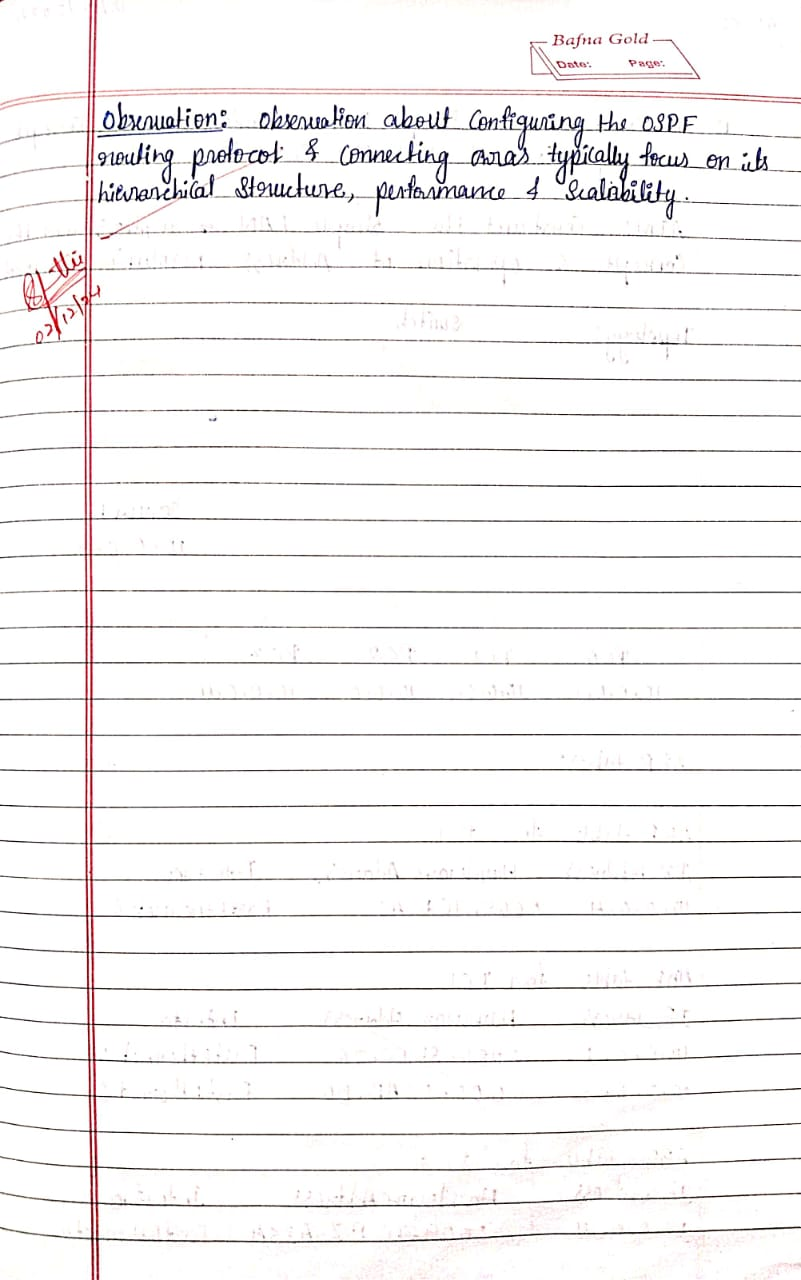 Bafna Gold
Date: Page:
Observation: Observation about Configuring the OSPF
routing protocol & Connecting areas typically focus on its
hierarchical Structure, performance & Scalability.
02/12/24